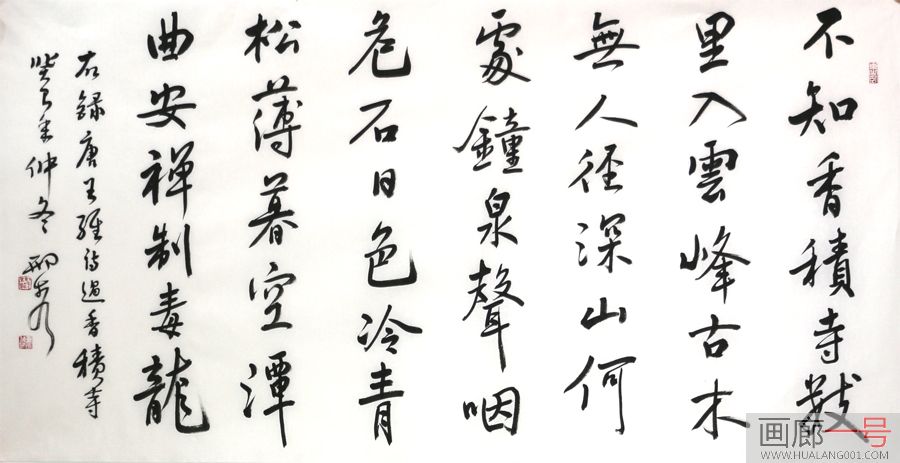 不知香積寺數
里入雲峰古木
無人径深山何
處鐘泉聲咽
危石日色冷青
松薄暮空潭
曲安禪制毒龍
右録唐王維詩過香積寺
癸巳年仲冬
画廊一号
WWW.HUALANG001.COM